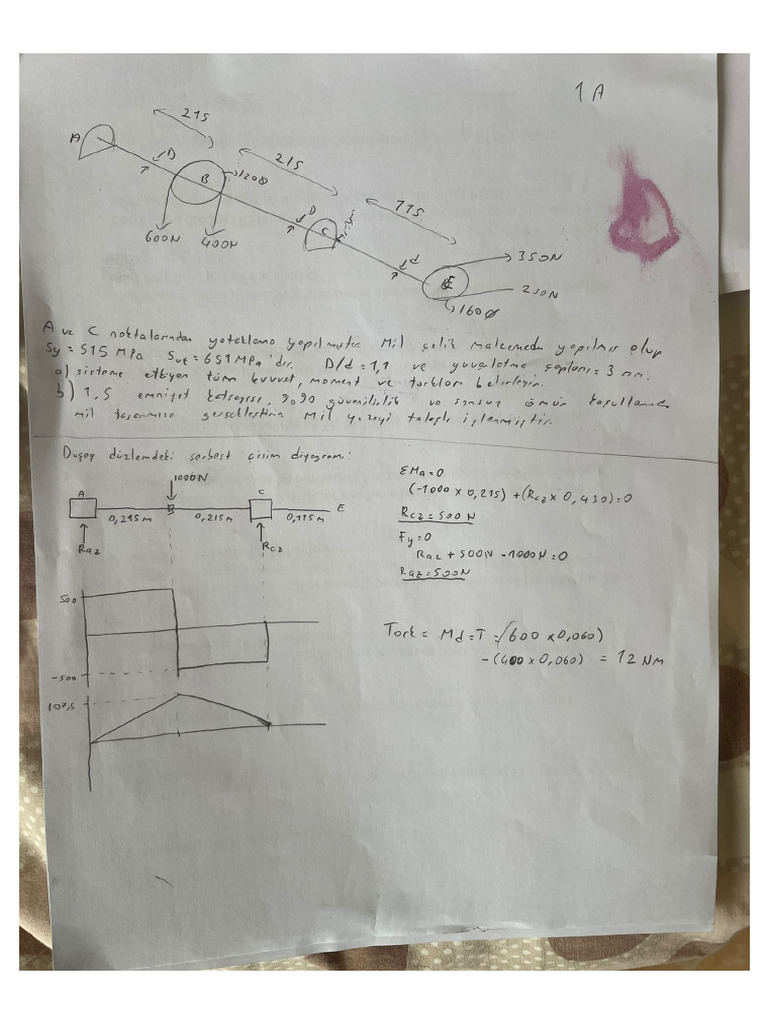 1 A
215
A
D
B
120⌀
215
600N
400N
D
C
115
d
E
350N
160⌀
A ve C noktalarından yataklama yapılmıştır. Mil çelik malzemeden yapılmış olup
Sy = 515 MPa Sut = 651 MPa'dır. D/d = 1,1 ve yuvarlatma çapları = 3 mm.
a) sisteme etkiyen tüm kuvvet, moment ve torkları belirleyin.
b) 1,5 emniyet katsayısı, %90 güvenilirlik ve sonsuz ömür koşullarında
mil tasarımını gerçekleştirin. Mil yüzeyi talaşlı işlenmiştir.
Düşey düzlemdeki serbest cisim diyagramı:
1000N
A
B
C
E
0,215m
0,215m
0,115m
Raz
Rcz
ΣMa=0
(-1000 x 0,215) + (Rcz x 0,430) = 0
Rcz = 500N
Fy = 0
Raz + 500N - 1000N = 0
Raz = 500N
500
-500
107,5
Tork = Md = T = (600 x 0,060)
-(400 x 0,060) = 12 Nm